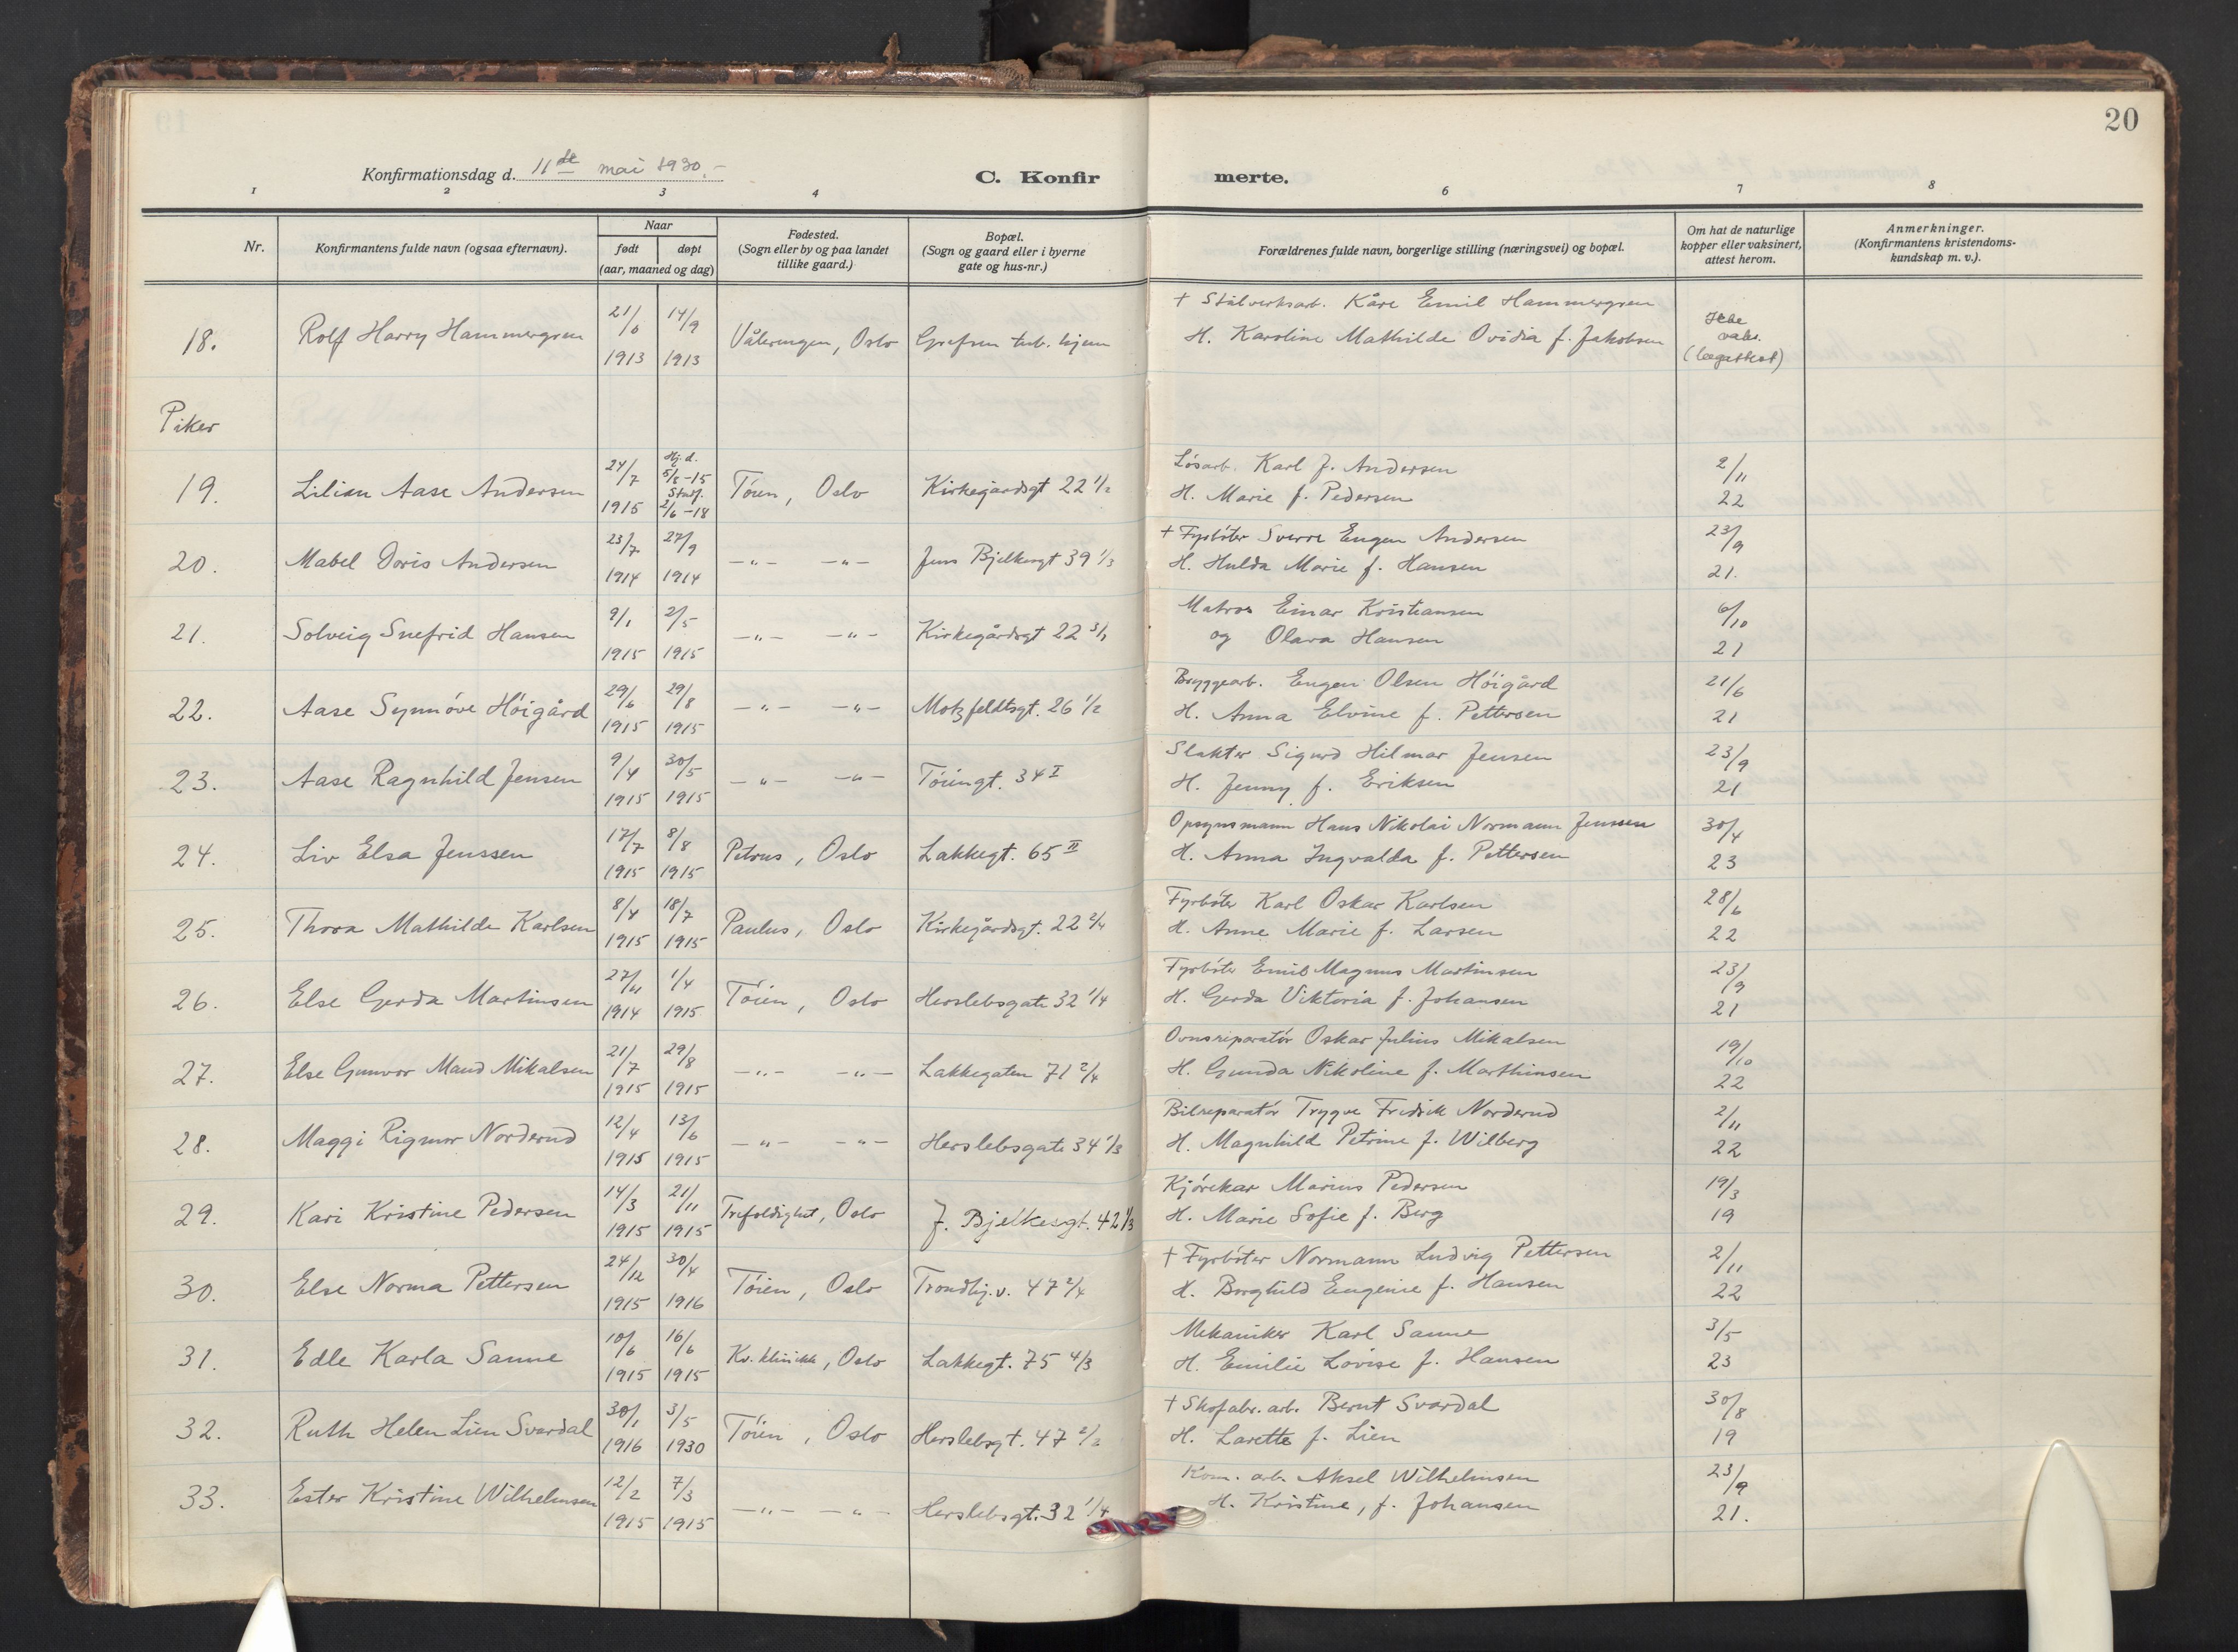 20
Konfirmationsdag d. 11de mai 1930.-
C. Konfirmerte.
1 2 3 4 6 7 8
Nr.
Konfirmantens fulde navn (ogsaa efternavn).
Naar
født døpt
(aar, maaned og dag)
Fødested.
(Sogn eller by og paa landet
tillike gaard.)
Bopæl.
(Sogn og gaard eller i byerne
gate og hus-nr.)
Forældrenes fulde navn, borgerlige stilling (næringsvei) og bopæl.
Om hat de naturlige
kopper eller vaksinert,
attest herom.
Anmerkninger.
(Konfirmantens kristendoms-
kundskap m. v.).
18. Rolf Harry Hammergren 21/6 1913 14/9 1913 Vålerengen, Oslo Grefsen tub. hjem
+ Stålverksarb. Kåre Emil Hammergren
H. Karoline Mathilde Ovidia f. Jakobsen
Ikke
vaks.
(lægattest)
Piker
19. Lilian Aase Andersen 24/7 1915 Hj. d. 5/8-15 Stadf. 2/6-18 Tøien, Oslo Kirkegårdsgt 22 1/2
Løsarb. Karl J. Andersen
H. Marie f. Pedersen
2/11 22
20. Mabel Doris Andersen 23/7 1914 27/9 1914 -"- -"- Jens Bjelkesgt 39 1/3
+ Fyrbøter Sverre Eugen Andersen
H. Hulda Marie f. Hansen
23/9 21.
21. Solveig Snefrid Hansen 9/1 1915 2/5 1915 -"- -"- Kirkegårdsgt 22 3/1
Matros Einar Kristiansen
og Olava Hansen
6/10 21
22. Aase Synnøve Høigård 29/6 1915 29/8 1915 -"- -"- Motzfeldtsgt. 26 1/2
Bryggearb. Eugen Olsen Høigård
H. Anna Elvine f. Pettersen
21/6 21
23. Aase Ragnhild Jensen 9/4 1915 30/5 1915 -"- -"- Tøiengt. 34 I
Slakter Sigurd Hilmar Jensen
H. Jenny f. Eriksen
23/9 21
24. Liv Elsa Jenssen 17/7 1915 8/8 1915 Petrus, Oslo Lakkegt. 65 II
Opsynsmann Hans Nikolai Normann Jenssen
H. Anna Ingvalda f. Pettersen
30/4 23
25. Thora Mathilde Karlsen 8/4 1915 18/7 1915 Paulus, Oslo Kirkegårdsgt. 22 2/4
Fyrbøter Karl Oskar Karlsen
H. Anne Marie f. Larsen
28/6 22
26. Else Gerda Martinsen 27/11 1914 1/4 1915 Tøien, Oslo Herslebsgate 32 1/4
Fyrbøter Emil Magnus Martinsen
H. Gerda Viktoria f. Johansen
23/9 21
27. Else Gunvor Maud Mikalsen 21/7 1915 29/8 1915 -"- -"- Lakkegaten 71 2/4
Ovnsreparatør Oskar Julius Mikalsen
H. Gunda Nikoline f. Marthinsen
19/10 22
28. Maggi Rigmor Norderud 12/4 1915 13/6 1915 -"- -"- Herslebsgate 34 1/3
Bilreparatør Trygve Fredrik Norderud
H. Magnhild Petrine f. Wilberg
2/11 22
29. Kari Kristine Pedersen 14/3 1915 21/11 1915 Trefoldighet, Oslo J. Bjelkesgt. 42 1/3
Kjørekar Marius Pedersen
H. Marie Sofie f. Berg
19/3 19
30. Else Norma Pettersen 24/12 1915 30/4 1916 Tøien, Oslo Trondhj.v. 47 2/4
+ Fyrbøter Normann Ludvig Pettersen
H. Borghild Eugenie f. Hansen
2/11 22
31. Edle Karla Sanne 10/6 1915 16/6 1915 Kv. klinikk, Oslo Lakkegt. 75 4/3
Mekaniker Karl Sanne
H. Emilie Lovise f. Hansen
3/5 23
32. Ruth Helen Lien Svardal 30/1 1916 3/5 1930 Tøien, Oslo Herslebsgt. 47 2/2
+ Skofabr. arb. Bernt Svardal
H. Larette f. Lien
30/8 19
33. Ester Kristine Wilhelmsen 12/2 1915 7/3 1915 -"- -"- Herslebsgt. 32 1/4
Kom. arb. Aksel Wilhelmsen
H. Kristine, f. Johansen
23/9 21.